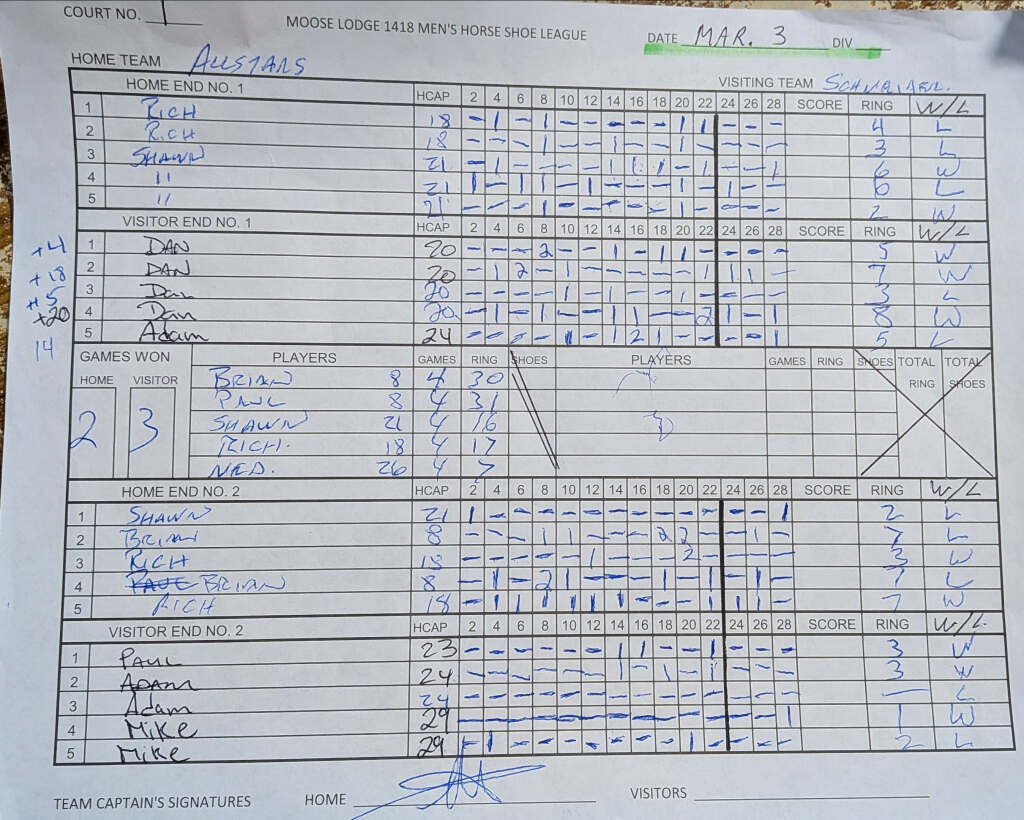 COURT NO. 1
MOOSE LODGE 1418 MEN'S HORSE SHOE LEAGUE
DATE MAR. 3 DIV
HOME TEAM ALLSTARS
VISITING TEAM
HOME END NO. 1 HCAP 2 4 6 8 10 12 14 16 18 20 22 24 26 28 SCORE RING W/L
1 RICH 18 - 1 - 1 - - - - - 1 1 - - - 4 L
2 RICH 18 - - - 1 - - 1 - - 1 - - - - 3 L
3 SHAWN 21 - 1 - - - - 1 1 1 - 1 - - 1 6 W
4 " 21 1 - 1 1 - 1 - - - 1 - 1 - - 6 L
5 " 21 - - - 1 - - - - - 1 - - - - 2 W
VISITOR END NO. 1 HCAP 2 4 6 8 10 12 14 16 18 20 22 24 26 28 SCORE RING W/L
+4 1 DAN 20 - - - 2 - - 1 - 1 1 - - - - 5 W
+18 2 DAN 20 - 1 2 - 1 - - - - - 1 1 1 - 7 W
+5 3 Dan 20 - - - - 1 - 1 - - 1 - - - - 3 L
+20 4 Dan 20 - 1 - 1 - - 1 1 - - 2 1 - 1 8 W
14 5 Adam 24 - - - - 1 - - 2 1 - - - - 1 5 L
GAMES WON PLAYERS GAMES RING SHOES PLAYERS GAMES RING SHOES TOTAL RING TOTAL SHOES
HOME VISITOR
2 3
BRIAN 8 4 30
PAUL 8 4 31
SHAWN 21 4 16
RICH. 18 4 17
NED. 26 4 7
HOME END NO. 2 HCAP 2 4 6 8 10 12 14 16 18 20 22 24 26 28 SCORE RING W/L
1 SHAWN 21 1 - - - - - - - - - - - - 1 2 L
2 BRIAN 8 - - - 1 1 - - - 2 2 - - 1 - 7 L
3 RICH 18 - - - - - 1 - - - 2 - - - - 3 W
4 PAUL BRIAN 8 - 1 - 2 1 - - - 1 - 1 - 1 - 7 L
5 RICH 18 - 1 1 1 1 1 1 - - - 1 1 1 - 7 W
VISITOR END NO. 2 HCAP 2 4 6 8 10 12 14 16 18 20 22 24 26 28 SCORE RING W/L
1 PAUL 23 - - - - - - 1 1 - - 1 - - - 3 W
2 ADAM 24 - - - - - - 1 - 1 - 1 - - - 3 W
3 Adam 24 - - - - - - - - - - - - - - — L
4 MIKE 29 - - - - - - - - - - - - - 1 1 W
5 MIKE 29 - 1 - - - - - - - 1 - - - - 2 L
TEAM CAPTAIN'S SIGNATURES HOME VISITORS